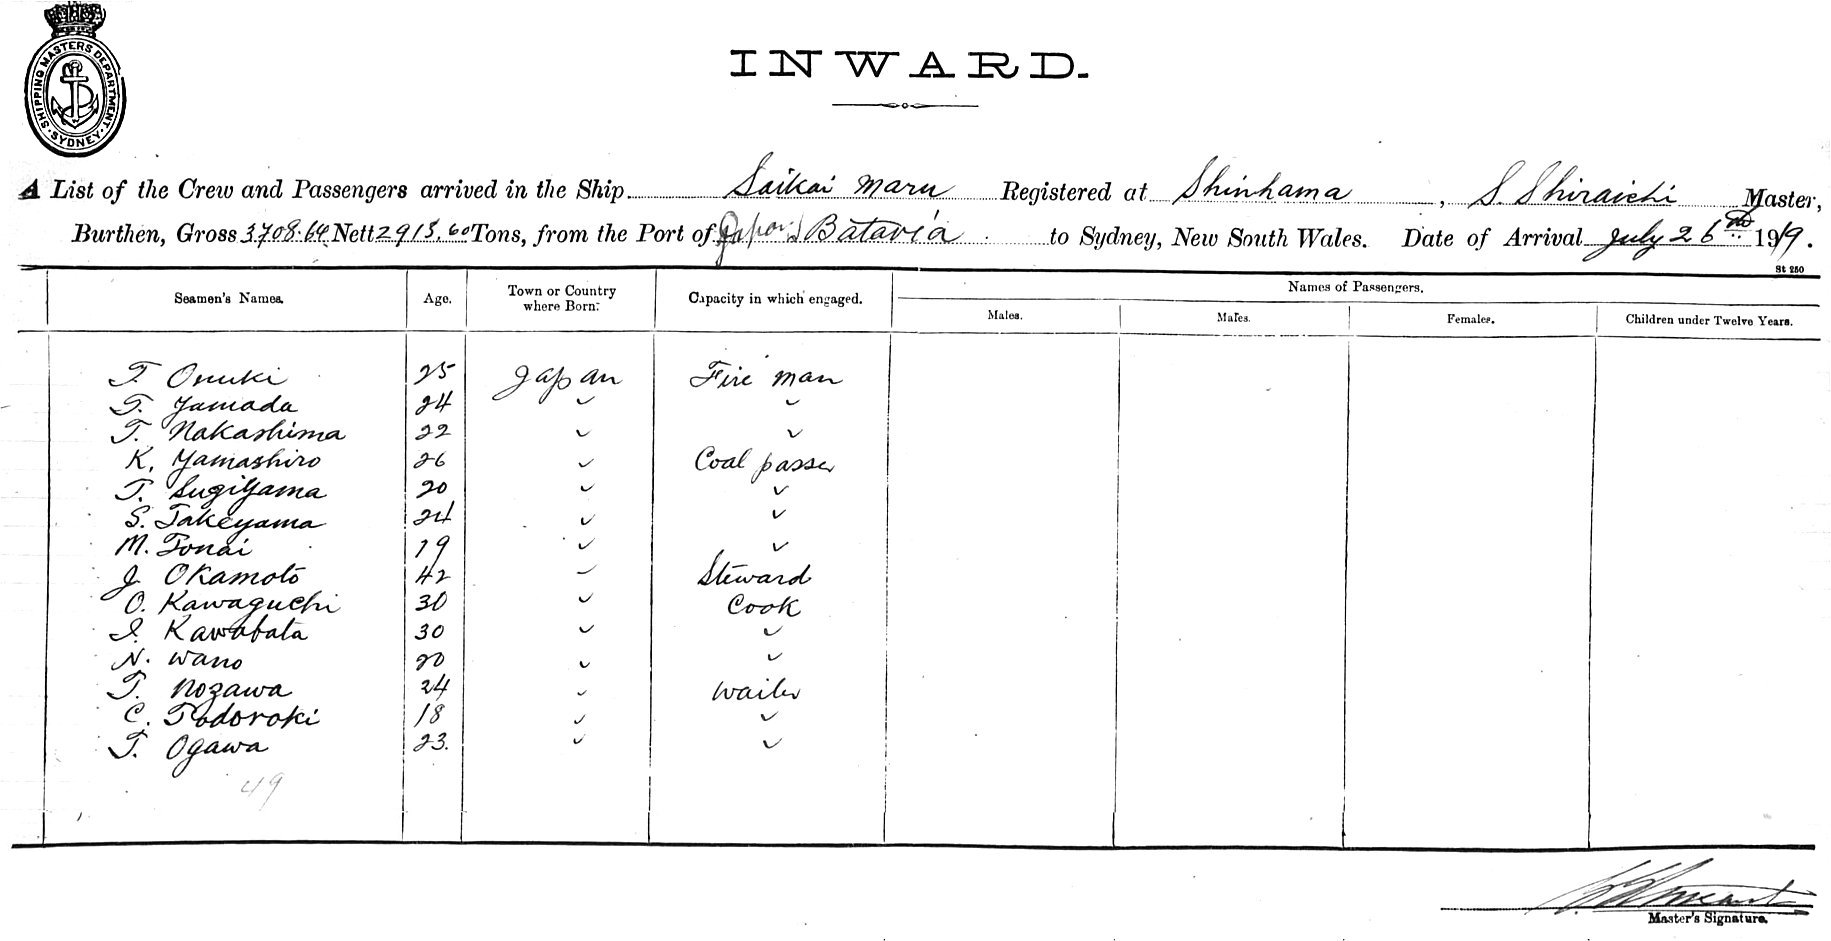 SHIPPING MASTERS DEPARTMENT. SYDNEY.
INWARD.
A List of the Crew and Passengers arrived in the Ship Saikai Maru Registered at Shinhama, S. Shiraichi Master,
Burthen, Gross 3708.64 Nett 2913.60 Tons, from the Port of Japan Batavia to Sydney, New South Wales. Date of Arrival July 26th 1919.
St 250
Seamen's Names. Age. Town or Country where Born. Capacity in which engaged. Names of Passengers.
Males. Males. Females. Children under Twelve Years.
T. Onuki 25 Japan Fire man
T. Yamada 24 " "
T. Nakashima 22 " "
K. Yamashiro 26 " Coal passer
T. Sugiyama 20 " "
S. Takeyama 24 " "
M. Tonai 19 " "
J. Okamoto 42 " Steward
O. Kawaguchi 30 " Cook
I. Kawabata 30 " "
N. Wano 20 " "
T. Nozawa 24 " Waiter
C. Todoroki 18 " "
T. Ogawa 23. " "
49
Master's Signature.